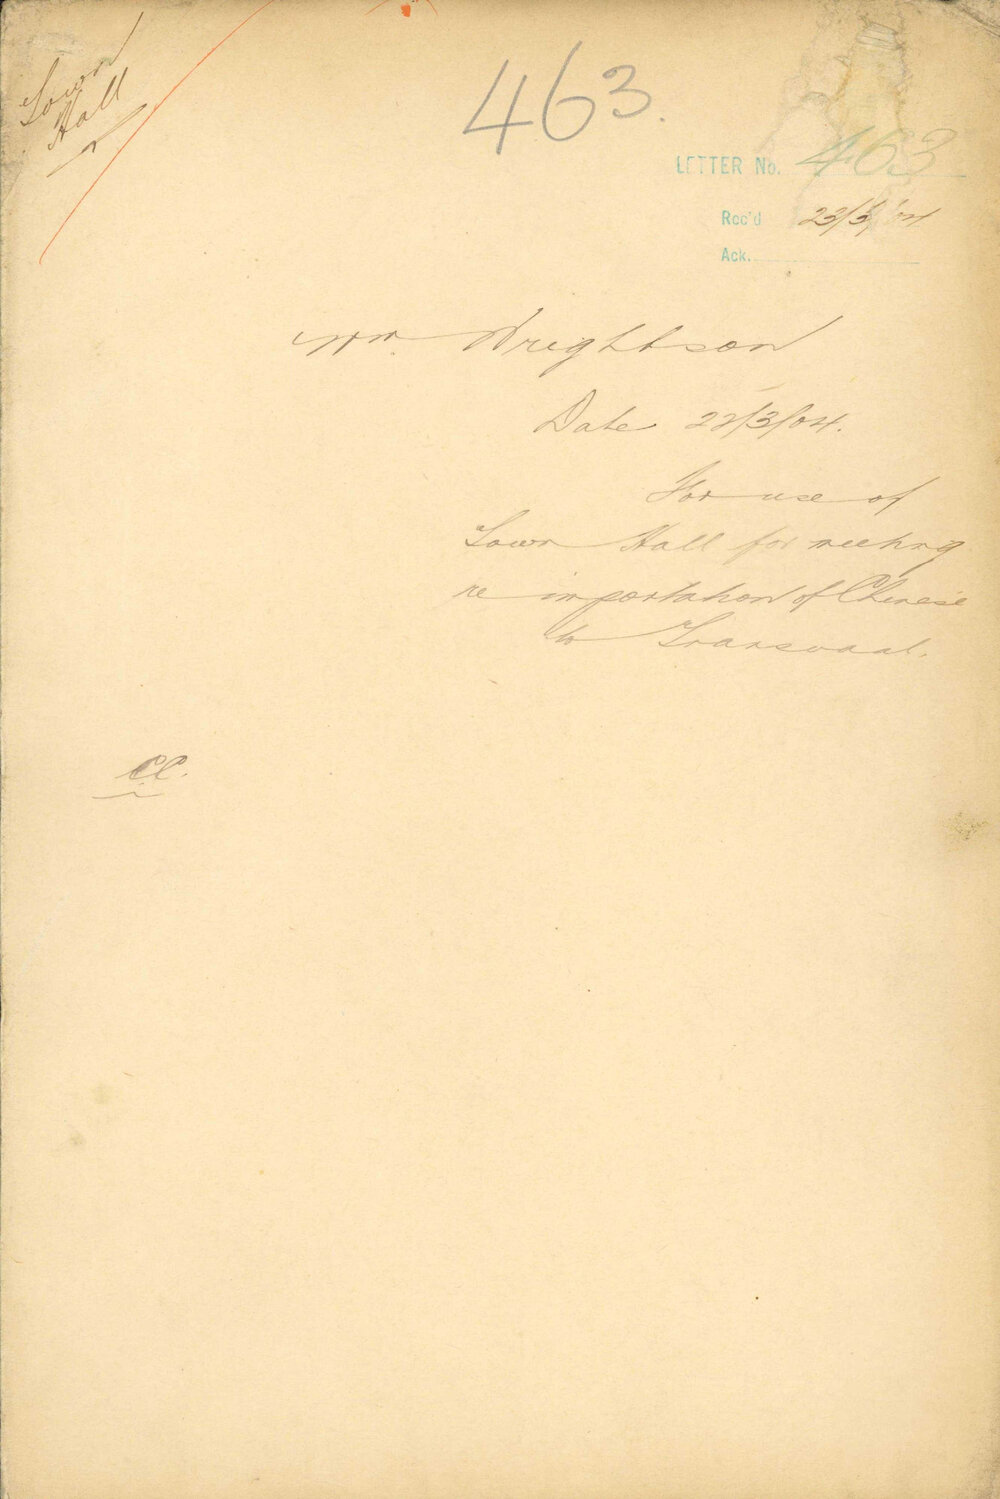 Town
Hall
463.
LETTER No. 463
Rec'd 23/3/04
Ack.
Wm Wrightson
Date 22/3/04.
For use of
Town Hall for meeting
re importation of Chinese
to Transvaal.
CC.